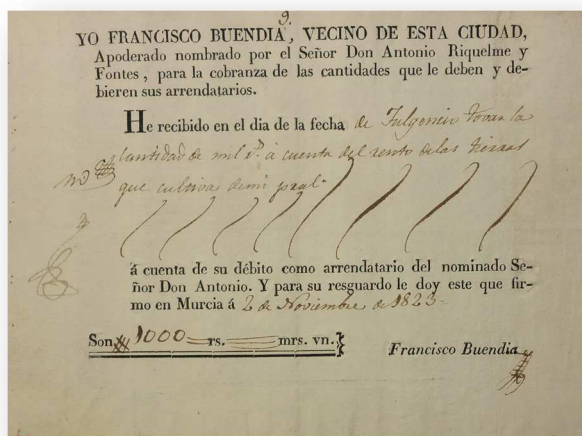 9.
YO FRANCISCO BUENDIA, VECINO DE ESTA CIUDAD,
Apoderado nombrado por el Señor Don Antonio Riquelme y
Fontes, para la cobranza de las cantidades que le deben y de-
bieren sus arrendatarios.
He recibido en el dia de la fecha de Fulgencio Tovar la
cantidad de mil rs. à cuenta del rento de las tierras
que cultiva de mi
á cuenta de su débito como arrendatario del nominado Se-
ñor Don Antonio. Y para su resguardo le doy este que fir-
mo en Murcia á 2 de Noviembre de 1823.
Son 1000 rs. mrs. vn.
Francisco Buendia